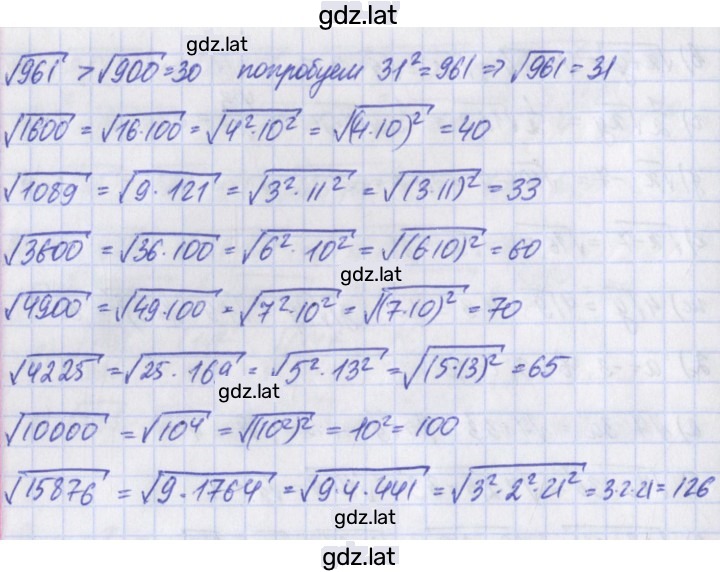 gdz.lat
gdz.lat
√961 > √900 = 30 попробуем 31² = 961 => √961 = 31
√1600 = √16·100 = √4²·10² = √(4·10)² = 40
√1089 = √9·121 = √3²·11² = √(3·11)² = 33
√3600 = √36·100 = √6²·10² = √(6·10)² = 60
gdz.lat
√4900 = √49·100 = √7²·10² = √(7·10)² = 70
√4225 = √25·169 = √5²·13² = √(5·13)² = 65
gdz.lat
√10000 = √10⁴ = √(10²)² = 10² = 100
√15876 = √9·1764 = √9·4·441 = √3²·2²·21² = 3·2·21 = 126
gdz.lat
gdz.lat